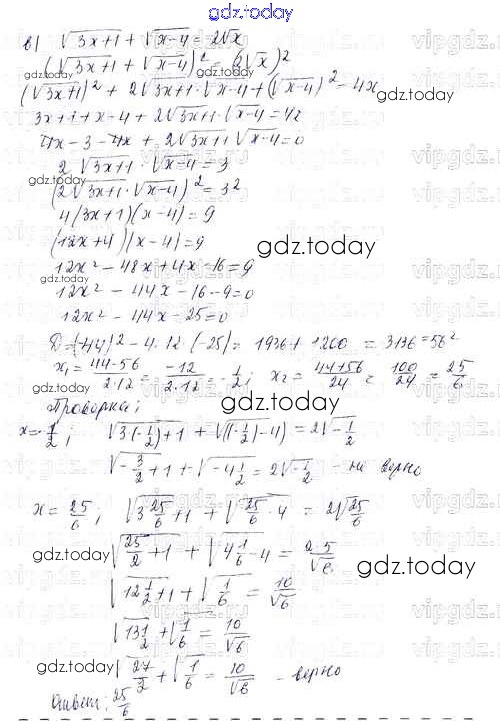 gdz.today
в) √(3x+1) + √(x-4) = 2√x
(√(3x+1) + √(x-4))² = (2√x)²
gdz.today
(√(3x+1))² + 2√(3x+1)·√(x-4) + (√(x-4))² = 4x
gdz.today
3x+1+x-4+2√(3x+1)·√(x-4)=4x
4x-3-4x+2√(3x+1)·√(x-4)=0
2√(3x+1)·√(x-4)=3
gdz.today
(2√(3x+1)·√(x-4))²=3²
4(3x+1)(x-4)=9
(12x+4)(x-4)=9
gdz.today
12x²-48x+4x-16=9
12x²-44x-16-9=0
12x²-44x-25=0
D=(-44)²-4·12·(-25)=1936+1200=3136=56²
x₁=(44-56)/(2·12)=-12/(2·12)=-1/2; x₂=(44+56)/24=100/24=25/6
gdz.today
Проверка:
gdz.today
x=-1/2; √(3(-1/2)+1)+√((-1/2)-4)=2√(-1/2)
√(-3/2+1)+√(-4 1/2)=2√(-1/2) - не верно
x=25/6; √(3 25/6+1)+√(25/6-4)=2√(25/6)
gdz.today
√(25/2+1)+√(4 1/6-4)=2·5/√6
gdz.today
√(12 1/2+1)+√(1/6)=10/√6
√(13 1/2)+√(1/6)=10/√6
gdz.today
√(27/2)+√(1/6)=10/√6 - верно
Ответ: 25/6